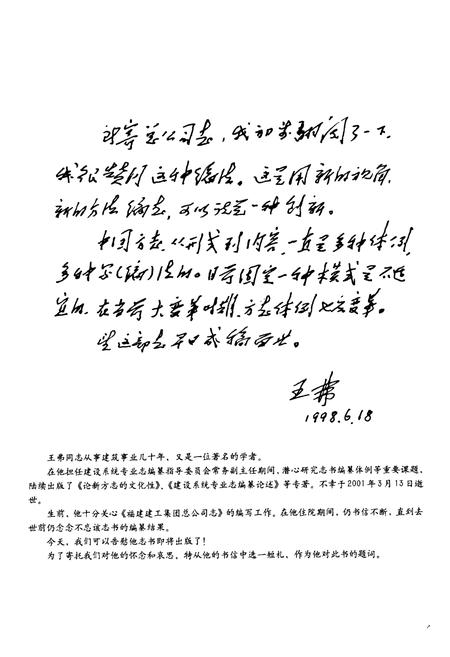 新的方法编志,可以说是一种创新。
中国方志,从形式到内容,一直是多种体例,
多种写(编)法的。目前固定一种模式是不适
宜的,在当前大变革时期,方志体例也应变革。
王弗
1998.6.18
王弗同志从事建筑事业几十年、又是一位著名的学者。
在他担任建设系统专业志编纂指导委员会常务副主任期间、潜心研究志书编纂体例等重要课题,
陆续出版了《论新方志的文化性》、《建设系统专业志编纂论述》等专著。不幸于2001年3月13日逝
世。
生前,他十分关心《福建建工集团总公司志》的编写工作。在他住院期间,仍书信不断,直到去
世前仍念念不忘该志书的编纂结果。
今天,我们可以告慰他志书即将出版了!
为了寄托我们对他的怀念和哀思,特从他的书信中选一短札、作为他对此书的题词。